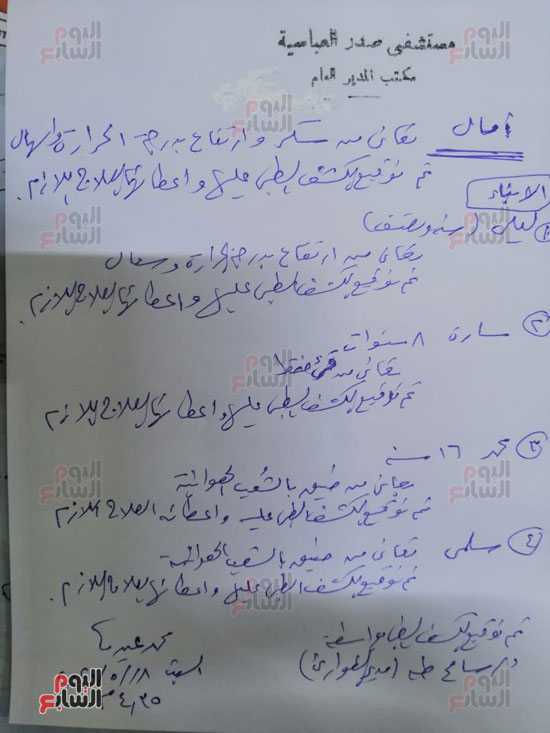 مستشفى صدر العباسية
مكتب المدير العام
أمال تعانى من سكر وارتفاع بدرجة الحرارة وإسهال
تم توقيع الكشف الطبى عليها واعطائها العلاج اللازم.
الابناء
① ليلى (سنه ونصف)
تعانى من ارتفاع بدرجة حرارة وسعال
تم توقيع الكشف الطبى عليها واعطائها العلاج اللازم.
② سارة ٨ سنوات
تعانى من قئ فقط
تم توقيع الكشف الطبى عليها واعطائها العلاج اللازم
③ محمد ١٦ سنه
يعانى من ضيق بالشعب الهوائية
تم توقيع الكشف الطبى عليه واعطائه العلاج اللازم
④ سلمى تعانى من ضيق بالشعب الهوائية
تم توقيع الكشف الطبى عليها واعطائها العلاج اللازم.
تم توقيع الكشف الطبى بواسطة
د/ سامح طه (مدير الطوارئ)
محمد عيد
السبت
٤,٣٥
اليوم السابع